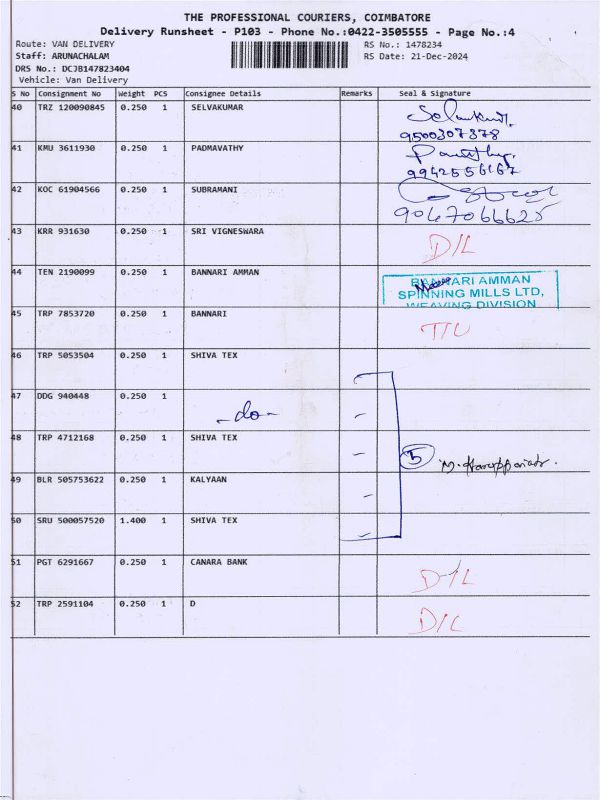 THE PROFESSIONAL COURIERS, COIMBATORE
Delivery Runsheet - P103 - Phone No.:0422-3505555 - Page No.:4
Route: VAN DELIVERY RS No.: 1478234
Staff: ARUNACHALAM RS Date: 21-Dec-2024
DRS No.: DCJB147823404
Vehicle: Van Delivery
S No Consignment No Weight PCS Consignee Details Remarks Seal & Signature
40 TRZ 120090845 0.250 1 SELVAKUMAR
9500307378
41 KMU 3611930 0.250 1 PADMAVATHY
9942556167
42 KOC 61904566 0.250 1 SUBRAMANI
9047066625
43 KRR 931630 0.250 1 SRI VIGNESWARA D/L
44 TEN 2190099 0.250 1 BANNARI AMMAN
BANNARI AMMAN
SPINNING MILLS LTD,
WEAVING DIVISION
45 TRP 7853720 0.250 1 BANNARI
46 TRP 5053504 0.250 1 SHIVA TEX
47 DDG 940448 0.250 1 -do-
48 TRP 4712168 0.250 1 SHIVA TEX 5
49 BLR 505753622 0.250 1 KALYAAN
50 SRU 500057520 1.400 1 SHIVA TEX
51 PGT 6291667 0.250 1 CANARA BANK D/L
52 TRP 2591104 0.250 1 D D/L